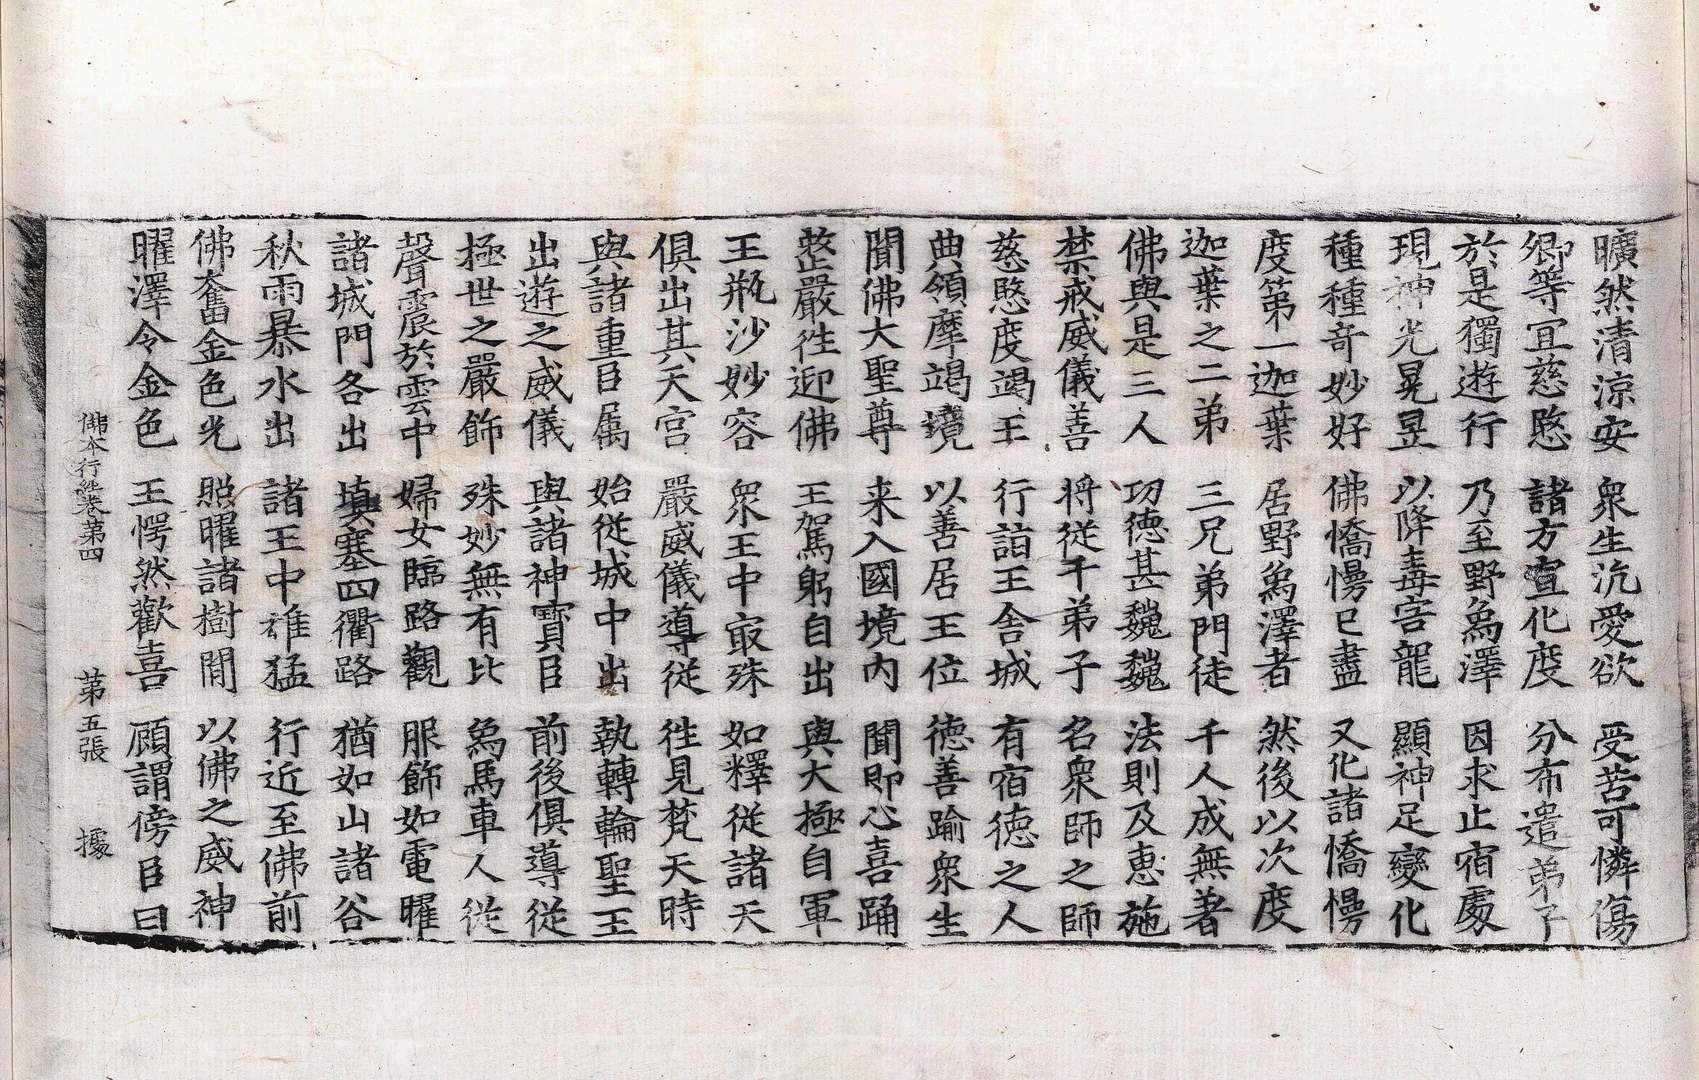 曠然清涼安 衆生汎愛欲 受苦可憐傷
卿等宜慈愍 諸方宣化度 分布遣弟子
於是獨遊行 乃至野象澤 因求止宿處
現神光晃昱 以降毒害龍 顯神足變化
種種奇妙好 佛憍慢已盡 又化諸憍慢
度第一迦葉 居野象澤者 然後以次度
迦葉之二弟 三兄弟門徒 千人成無著
佛與是三人 功德甚巍巍 法則及惠施
禁戒威儀善 將從千弟子 名衆師之師
慈愍度竭王 行詣王舍城 有宿德之人
典領摩竭境 以善居王位 德善踰衆生
聞佛大聖尊 来入國境内 聞即心喜踊
整嚴往迎佛 王駕躬自出 與大極自軍
王瓶沙妙容 衆王中㝡殊 如釋從諸天
俱出其天宮 嚴威儀導從 往見梵天時
與諸重臣属 始從城中出 執轉輪聖王
出遊之威儀 與諸神寶臣 前後俱導從
極世之嚴飾 殊妙無有比 象馬車人從
聲震於雲中 婦女臨路觀 服飾如電曜
諸城門各出 填塞四衢路 猶如山諸谷
秋雨暴水出 諸王中雄猛 行近至佛前
佛奮金色光 照曜諸樹閒 以佛之威神
曜澤令金色 王愕然歡喜 顧謂傍臣曰
佛本行經卷第四 第五張 據